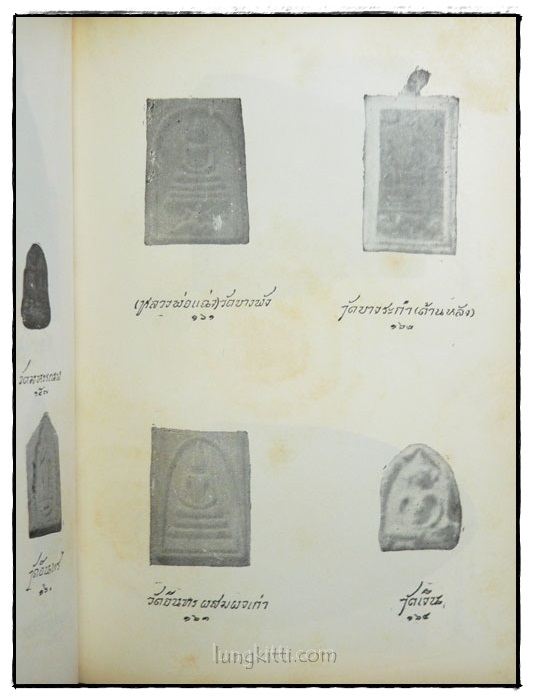 (หลวงพ่อแฉ่ง)วัดบางพัง
๑๖๑
วัดบางระกำ(ด้านหลัง)
วัดอินทร์
๑๖๐
วัดอินทร ผสมผงเก่า
วัดเงิน
๑๖๔
lungkitti.com